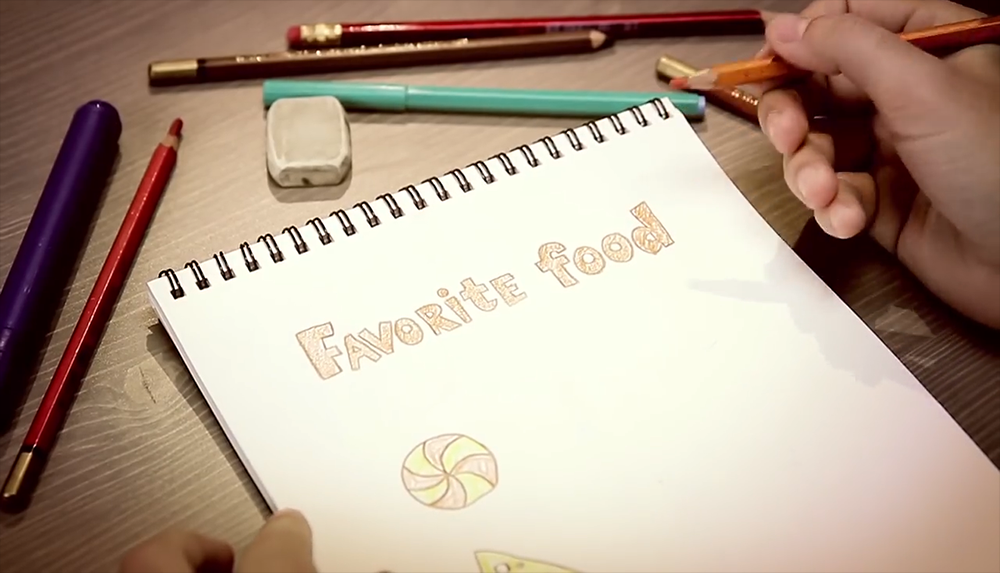 Favorite food